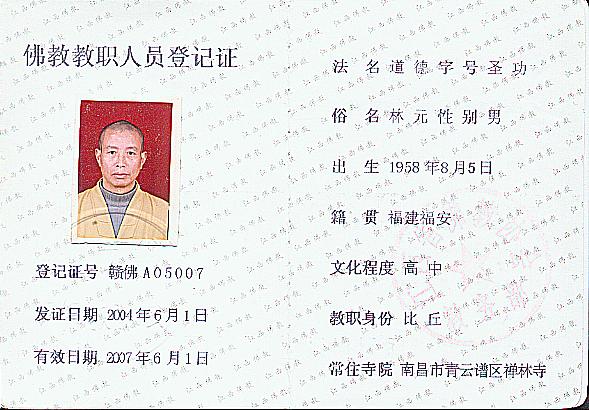 佛教教职人员登记证
登记证号 赣佛A05007
发证日期 2004年6月1日
有效日期 2007年6月1日
法 名 道 德 字 号 圣 功
俗 名 林 元 性 别 男
出 生 1958年8月5日
籍 贯 福建福安
文化程度 高 中
教职身份 比 丘
常住寺院 南昌市青云谱区禅林寺